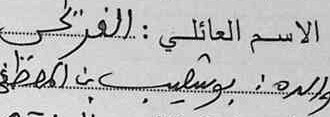 الاسم العائلي : الفرتحي
والده : بوشعيب بن المصطفى